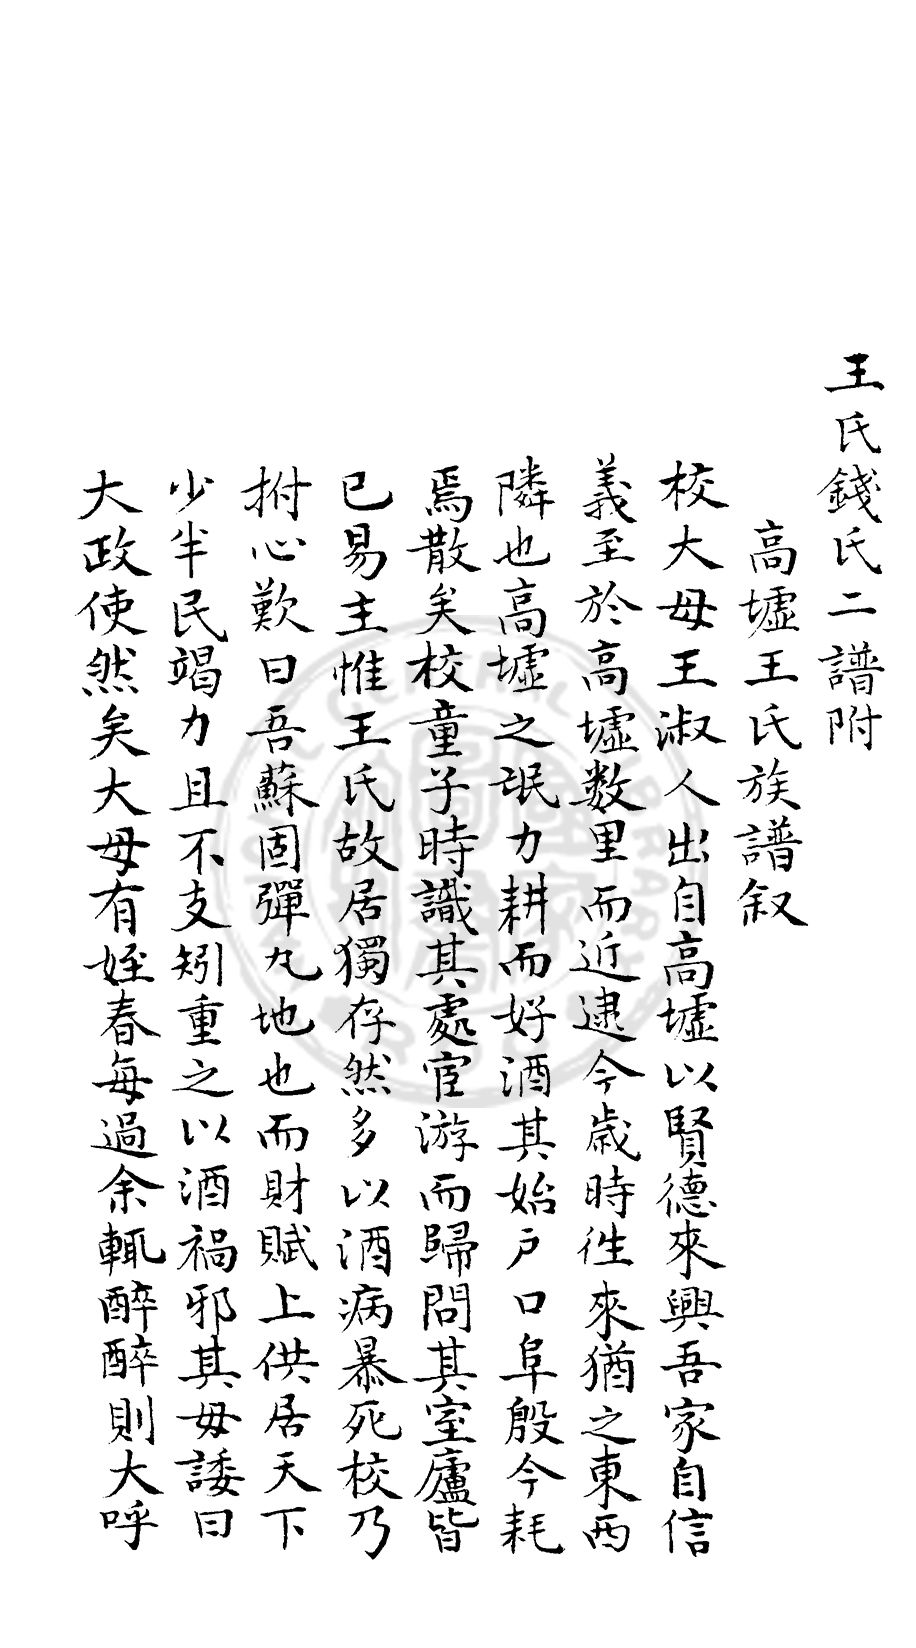 王氏錢氏二譜附
高墟王氏族譜叙
校大母王淑人出自高墟以賢德來興吾家自信
義至於高墟数里而近逮今歲時徃來猶之東西
隣也高墟之氓力耕而好酒其始戸口阜殷今耗
焉散矣校童子時識其處宦游而歸問其室廬皆
已易主惟王氏故居獨存然多以酒病暴死校乃
拊心歎曰吾蘇固彈丸地也而財賦上供居天下
少半民竭力且不支矧重之以酒禍邪其毋諉曰
大政使然矣大母有姪春每過余輒醉醉則大呼